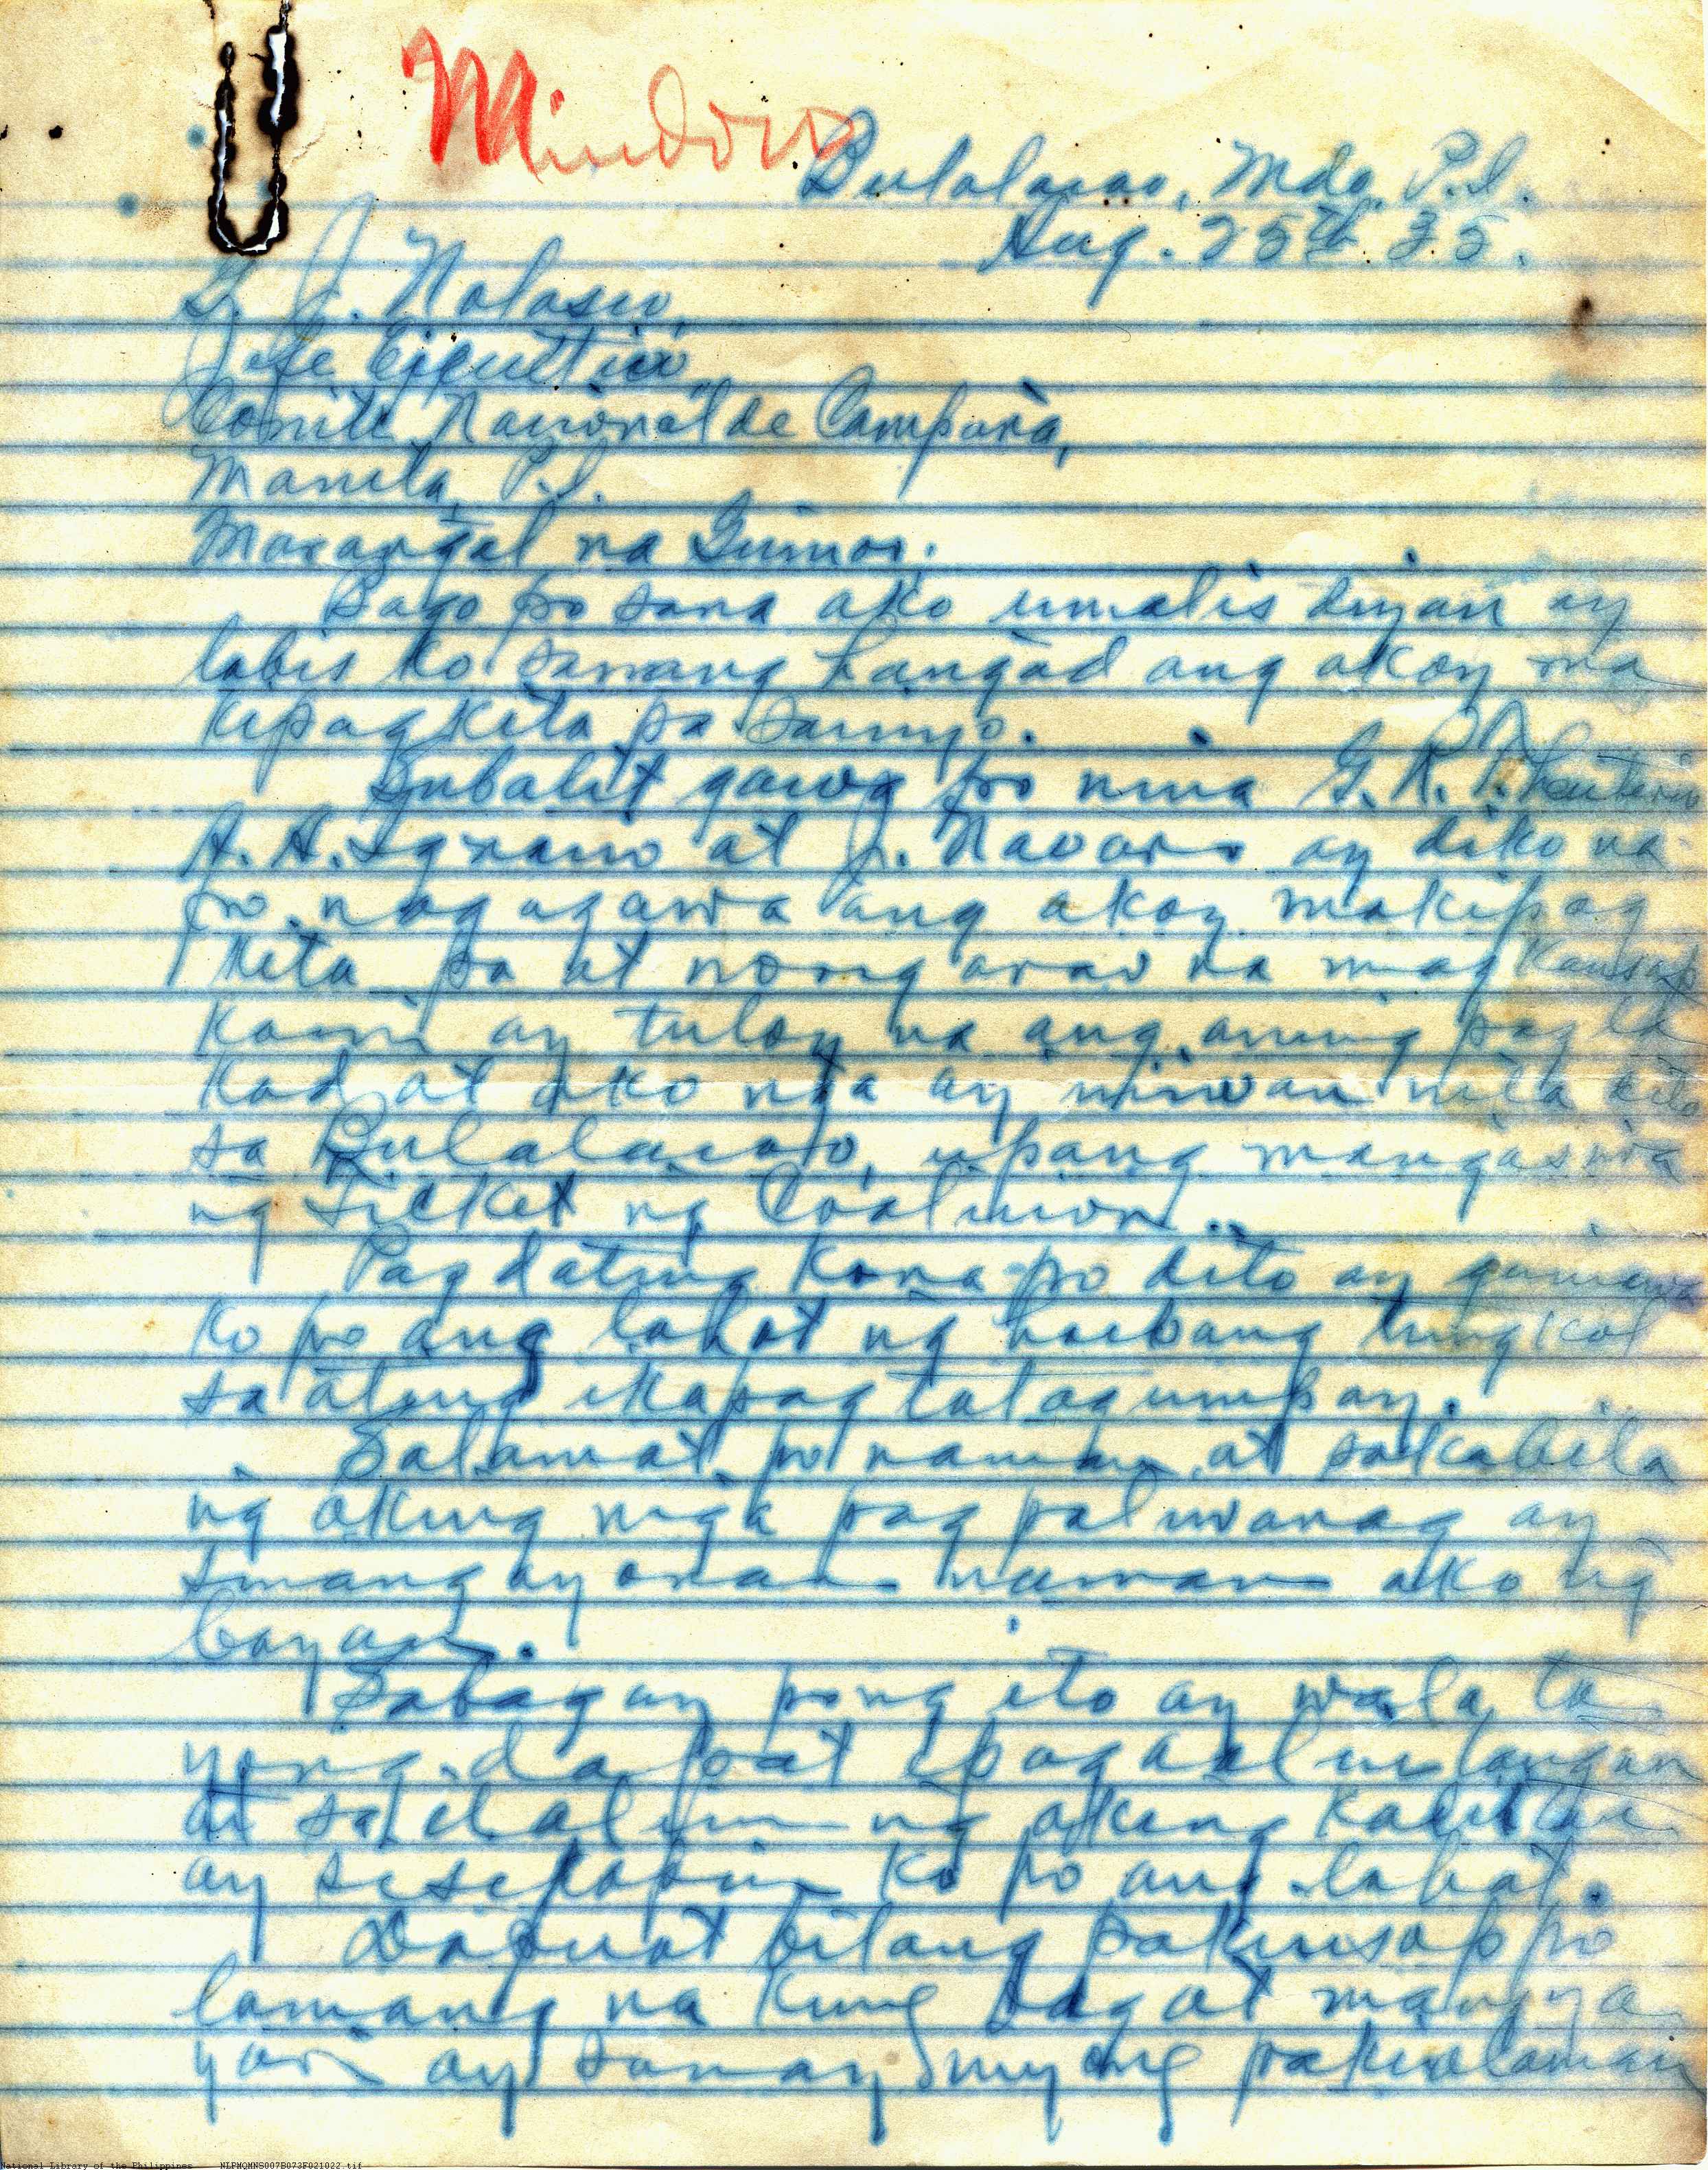 Mindoro
Bulalacao, Mdo, P.I.
Aug. 25th 35.
G. J. Nolasco,
Jefe Ejecutivo
Comite Nacional de Campaña,
Manila, P.I.
Marangal na Guinoo:
Bago po sana ako umalis diyan ay
labis ko sanang hangad ang akoy ma
kipagkita pa sainyo.
Subalit gawa po nina G. R.
A. H. Ignacio at J. Navaro ay diko na
po nagagawa ang akoy makipag
kita pa at noong araw na mag kausap
kami ay tuloy na ang aming pag la
kad at ako nga ay iniwan nila dito
sa Bulalacao, upang mangasiwa
ng ticket ng Coalision.
Pagdating kona po dito ay
ko po ang lahat ng tungkol
sa ating ikapagtatagumpay.
Salamat po naman, at sakabila
ng aking mga pag paliwanag ay
sinangayonan naman ako ng
bayan.
Sabagay pong ito ay wala ta
yong dapat ipagaalinlangan
at sa ilalim ng aking
ay sisikapin ko po ang lahat.
Dapuat bilang pakiusap po
lamang na kung sagat mangya
yari ay pakialaman
National Library of the Philippines NLPMQMNS007B073F021022.tif